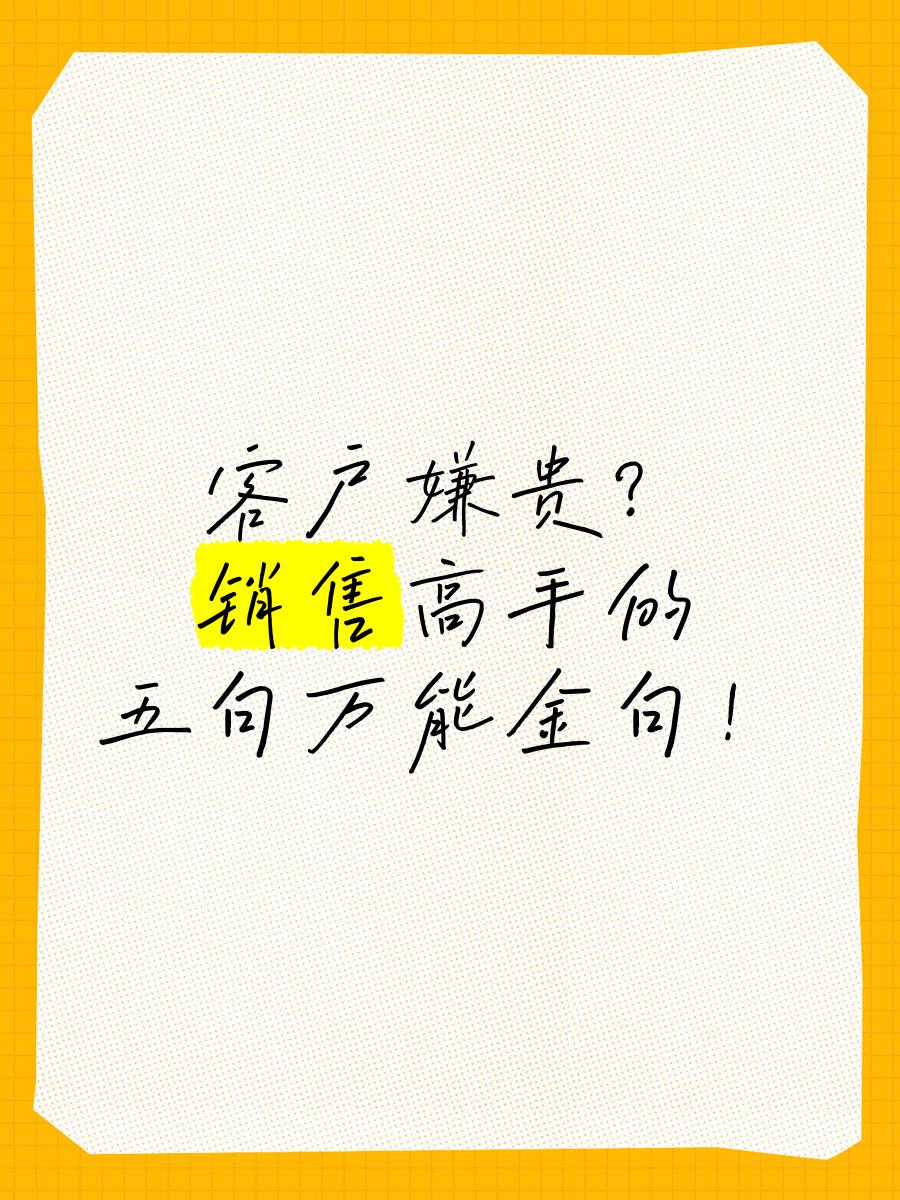 客户嫌贵?
销售高手的
五句万能金句!